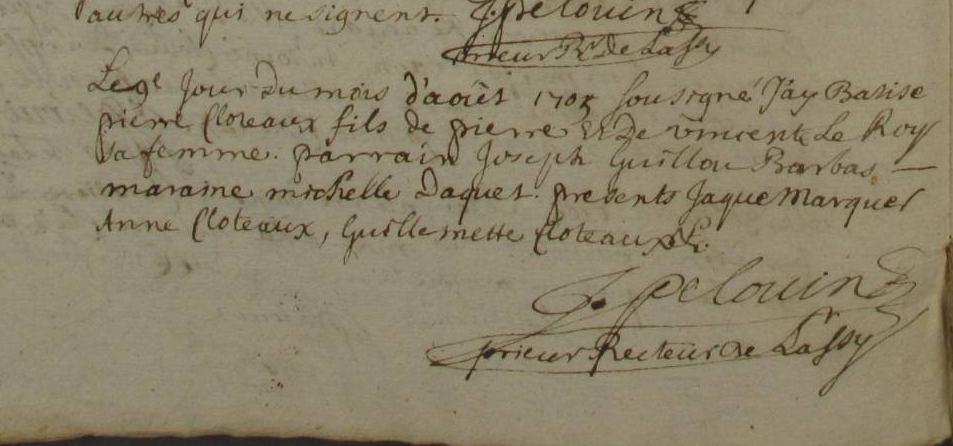 autres qui ne signent. J. Pelouin
prieur Rr. de Lassy
Le 9e Jour Du mois d'août 1705 Sousigné J'ay Batisé
pierre Cloteaux fils de pierre Et De vincente Le Roy
sa femme. parrain Joseph Guillou Barbas
maraine michelle Daguet. presents Jaque Marquer
Anne Cloteaux, Guillemette Cloteaux &c.
J. Pelouin
prieur Recteur De Lassy